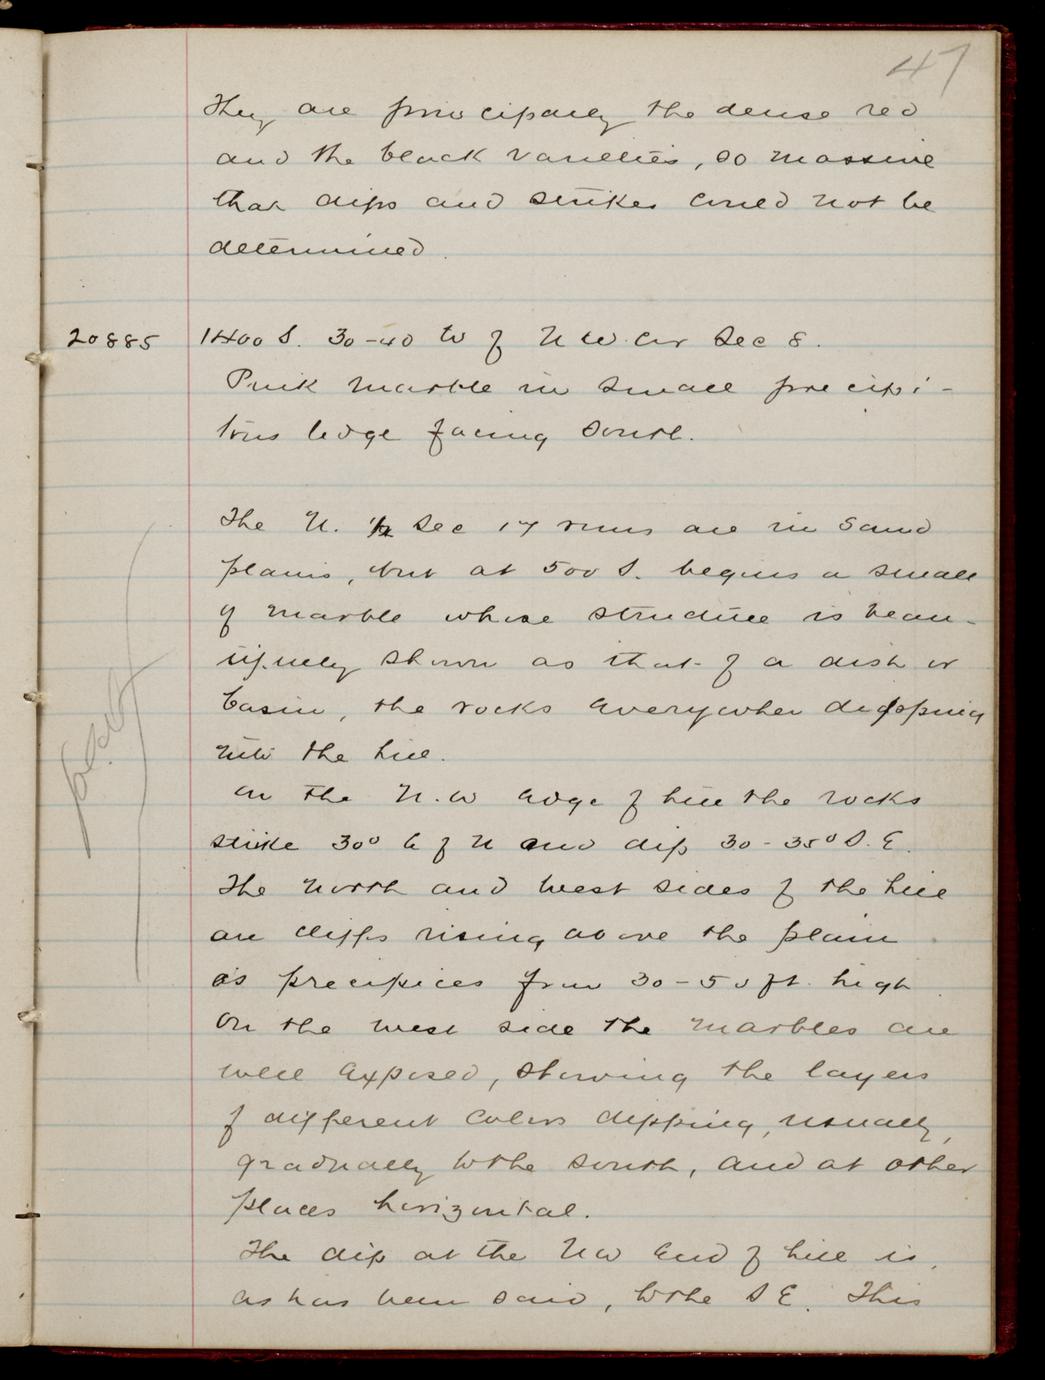 47
They are principaly the dense red
and the black varieties, so massive
that dips and strikes could not be
determined.
20885 1400 S. 30-40 W of N W. Cor Sec 8.
Pink marble in small precipi-
tous ledge facing south.
The N. 1/2 Sec 17 runs are in sand
plains, but at 500 S. begins a small
of marble whose structure is beau-
tifuely shown as that of a dish or
basin, the rocks everywher dipping
into the hill.
On the N.W edge of hill the rocks
strike 30° E of N and dip 30-35° S. E.
The North and West sides of the hill
are cliffs rising above the plain
as precipices from 30-50 ft. high.
On the west side the marbles are
well exposed, showing the layers
of different colors dipping, usually,
gradually to the south, and at other
places horizontal.
The dip at the NW end of hill is,
as has been said, to the S E. This